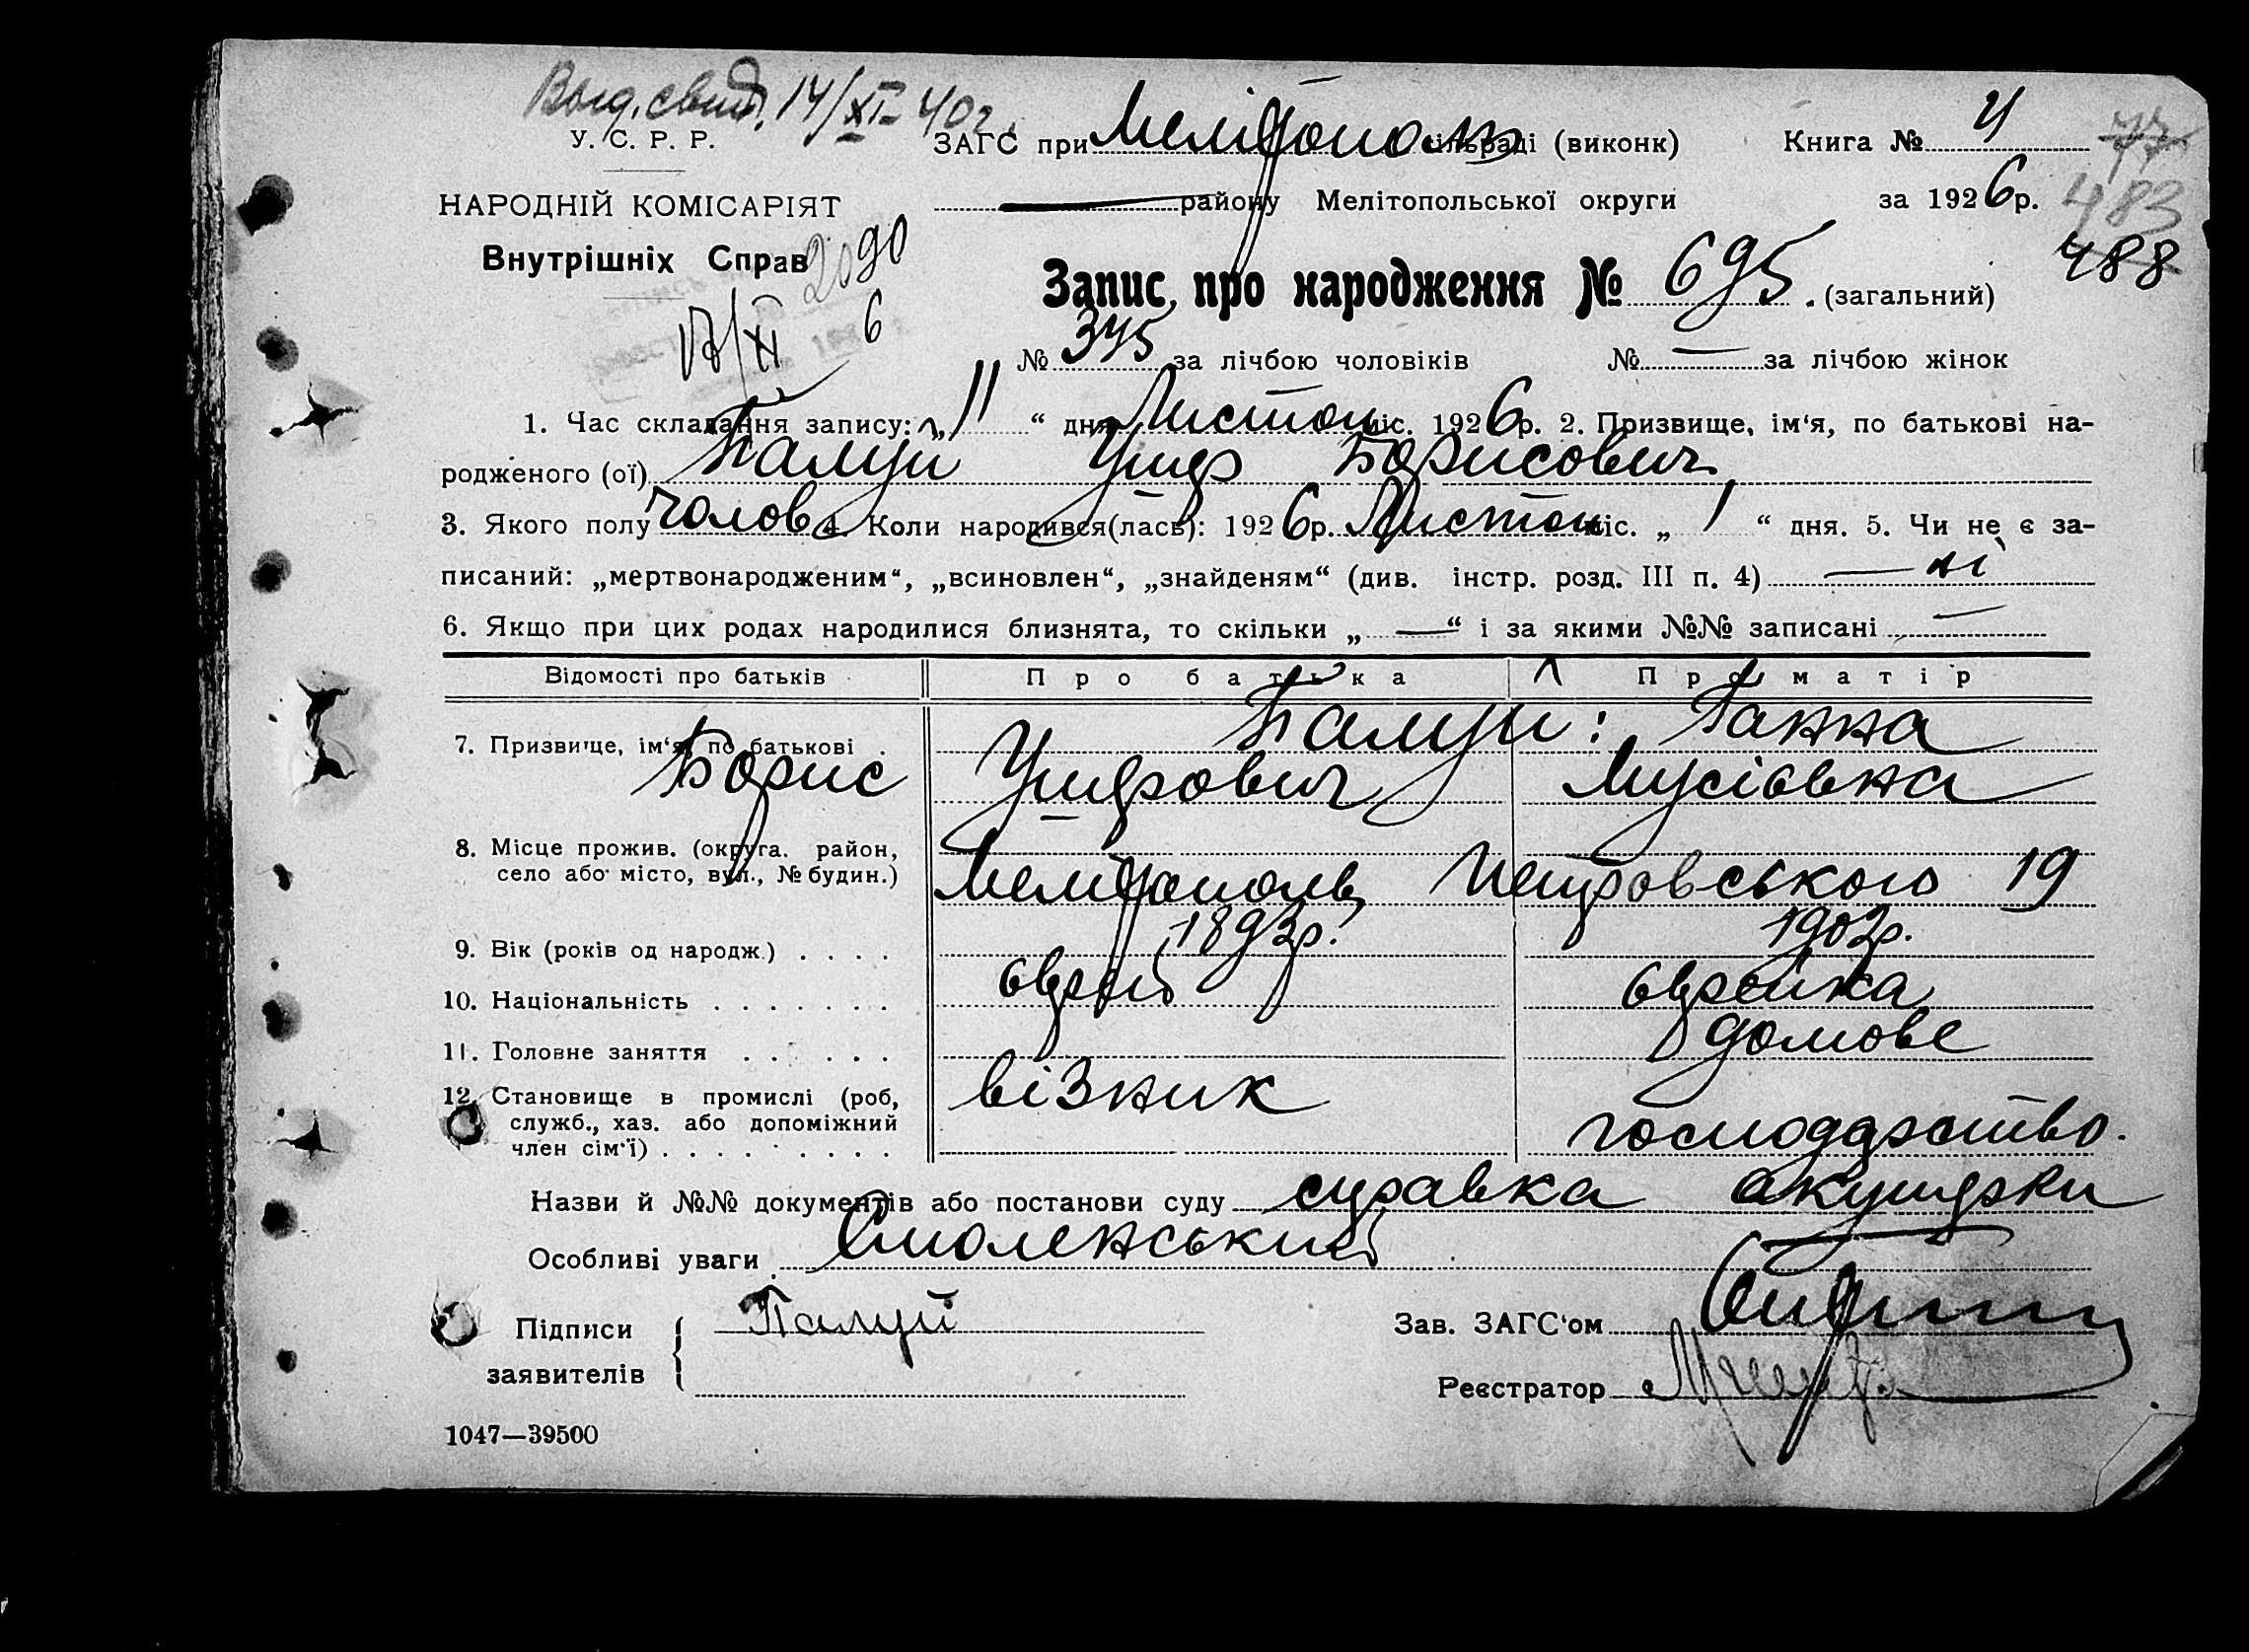 Выд. свид. 14/XI-40 г.
У. С. Р. Р.
ЗАГС при Мелітополь сільраді (виконк) Книга № 4
77
НАРОДНІЙ КОМІСАРІЯТ
району Мелітопольської округи за 1926 р.
483
Внутрішніх Справ
488
2090
Запис про народження № 695. (загальний)
6
№ 345 за лічбою чоловіків № — за лічбою жінок
1. Час складання запису: „11“ дня Листоп міс. 1926 р. 2. Призвище, ім‘я, по батькові на-
родженого (ої) Палуй Ушер Борисович
3. Якого полу чолов 4. Коли народився(лась): 1926 р. Листоп міс. „1“ дня. 5. Чи не є за-
писаний: „мертвонародженим“, „всиновлен“, „знайденям“ (див. інстр. розд. III п. 4) — ні
6. Якщо при цих родах народилися близнята, то скільки „—“ і за якими №№ записані —
Відомості про батьків Про батька Про матір
7. Призвище, ім‘я, по батькові Палуй: Ганна
Борис Ушерович Мусіовна
8. Місце прожив. (округа. район,
село або місто, вул., № будин.) Мелітополь Петровського 19
9. Вік (років од народж.) 1893р. 1902р.
10. Національність еврей еврейка
11. Головне заняття домове
12. Становище в промислі (роб, візник
служб., хаз. або допоміжний господарство.
член сім‘ї)
Назви й №№ документів або постанови суду справка акушерки
Особливі уваги Смоленський
Підписи Палуй
заявителів
Зав. ЗАГС‘ом
Реєстратор
1047—39500